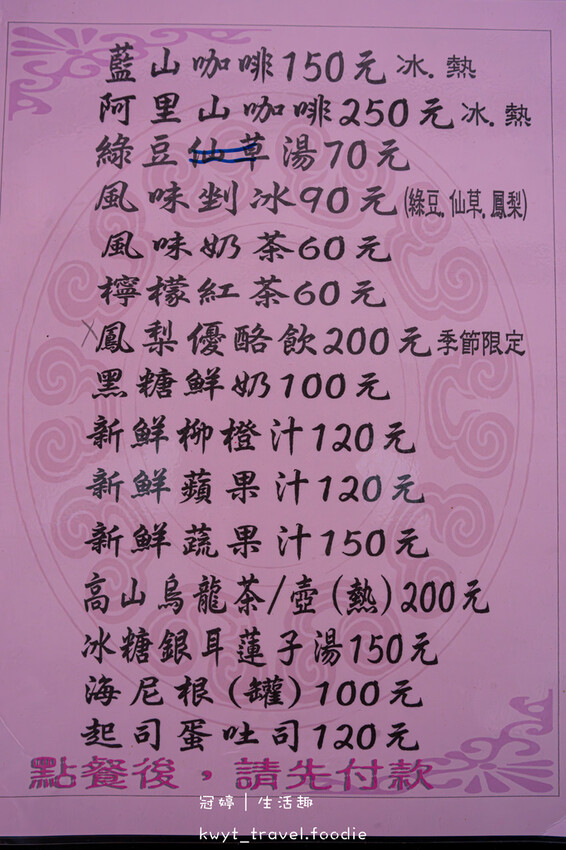 藍山咖啡150元 冰.熱
阿里山咖啡250元 冰.熱
綠豆仙草湯70元
風味剉冰90元(綠豆.仙草.鳳梨)
風味奶茶60元
檸檬紅茶60元
鳳梨優酪飲200元 季節限定
黑糖鮮奶100元
新鮮柳橙汁120元
新鮮蘋果汁120元
新鮮蔬果汁150元
高山烏龍茶/壺(熱)200元
冰糖銀耳蓮子湯150元
海尼根(罐)100元
起司蛋吐司120元
點餐後，請先付款
冠婷｜生活趣
kwyt_travel.foodie